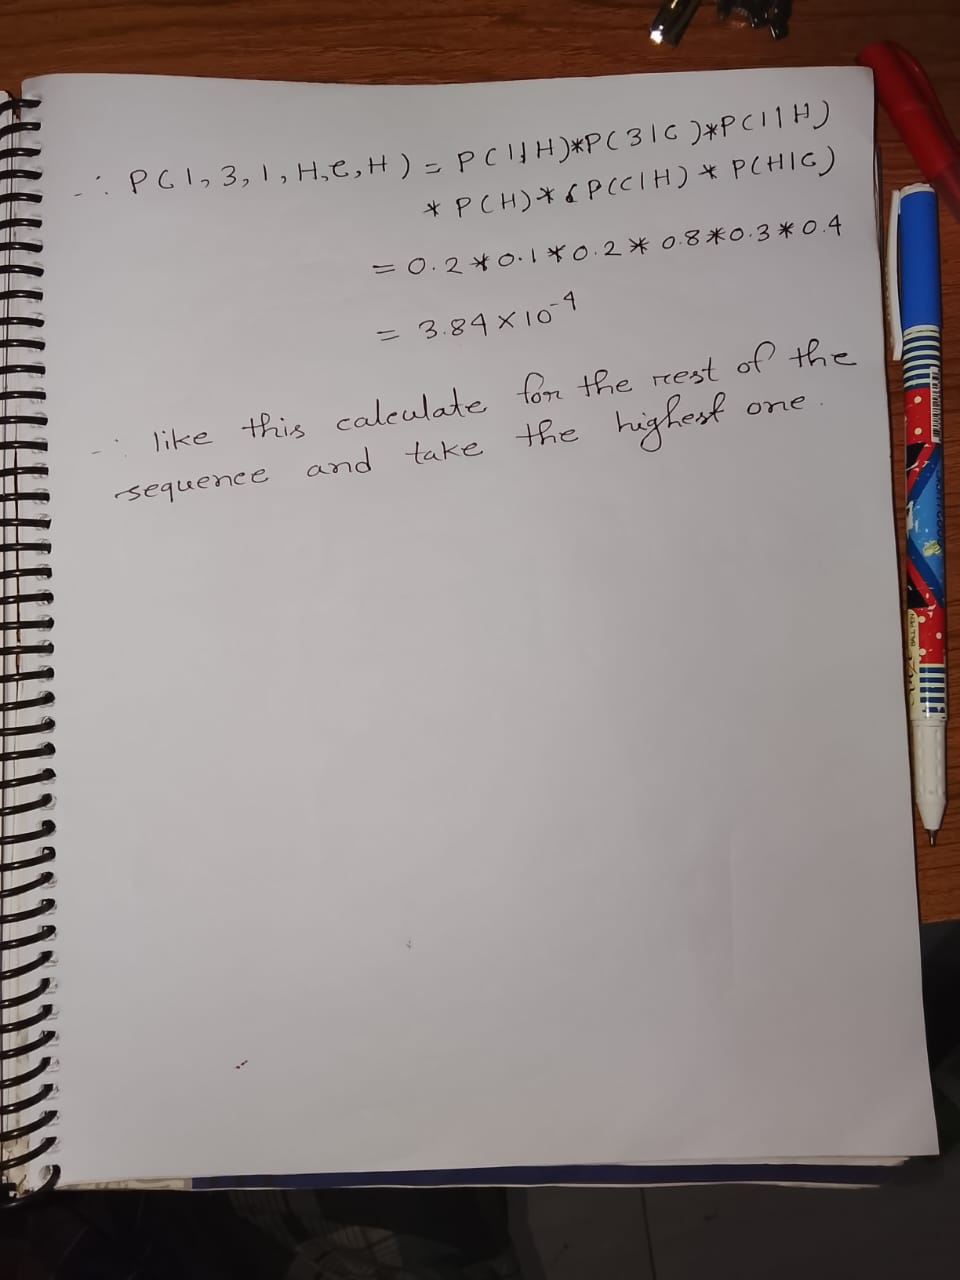 ∴ P(1, 3, 1, H, C, H) = P(1|H)*P(3|C)*P(1|H)
* P(H)* P(C|H) * P(H|C)
= 0.2*0.1*0.2*0.8*0.3*0.4
= 3.84×10⁻⁴
∴ like this calculate for the rest of the
sequence and take the highest one.
BALL PEN